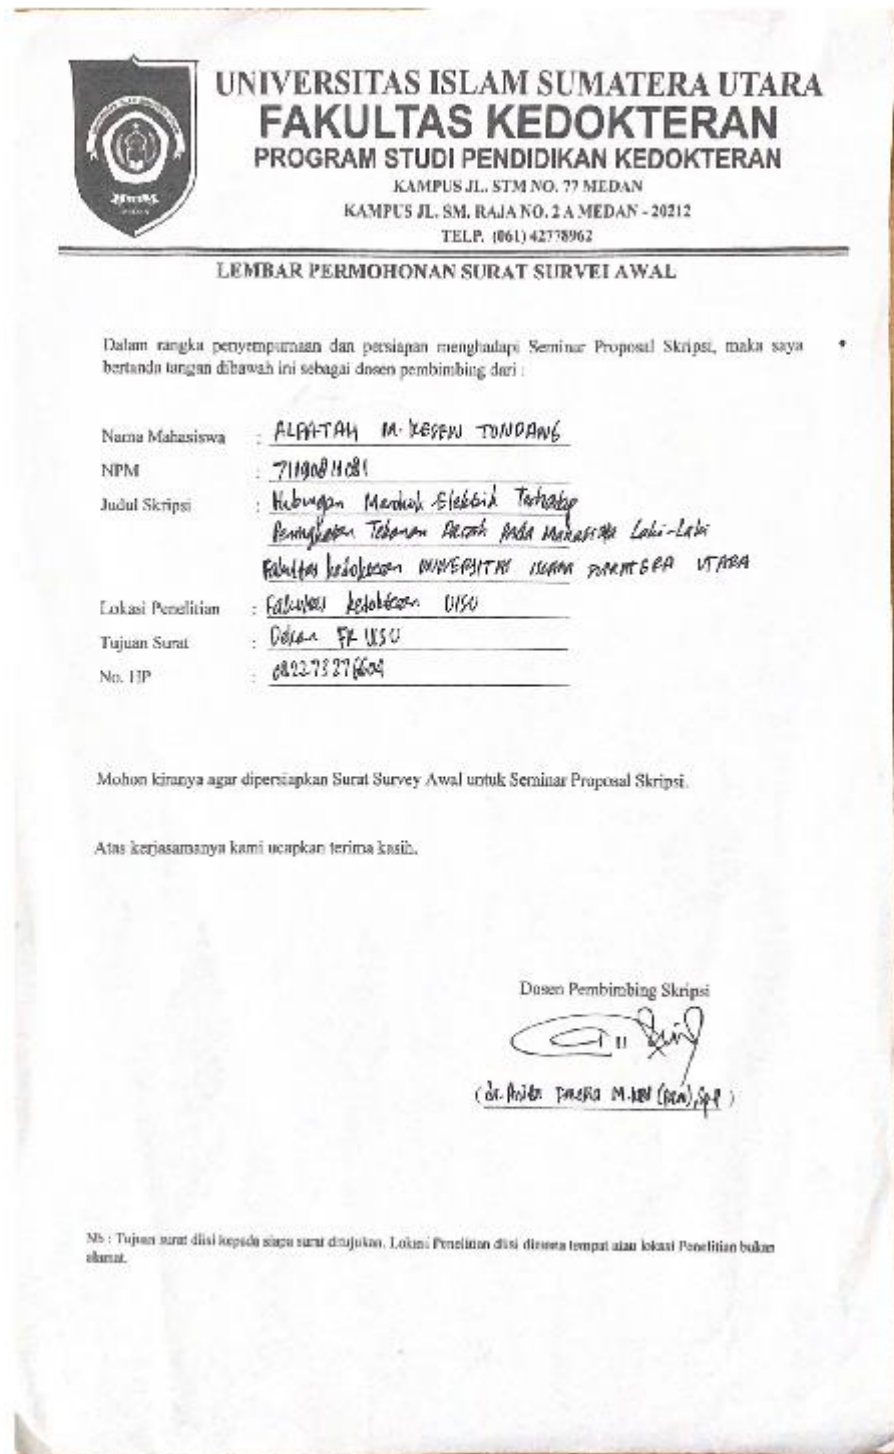 UNIVERSITAS ISLAM SUMATERA UTARA
FAKULTAS KEDOKTERAN
PROGRAM STUDI PENDIDIKAN KEDOKTERAN
KAMPUS JL. STM NO. 77 MEDAN
KAMPUS JL. SM. RAJA NO. 2 A MEDAN - 20212
TELP. (061) 42778962
LEMBAR PERMOHONAN SURAT SURVEI AWAL
Dalam rangka penyempurnaan dan persiapan menghadapi Seminar Proposal Skripsi, maka saya
bertanda tangan dibawah ini sebagai dosen pembimbing dari :
Nama Mahasiswa : ALFATAH M. TONDANG
NPM :
Judul Skripsi : Hubungan Merokok Elektrik Terhadap
Peningkatan Tekanan Darah Pada Mahasiswa Laki-Laki
Fakultas kedokteran UNIVERSITAS ISLAM SUMATERA UTARA
Lokasi Penelitian : Fakultas kedokteran UISU
Tujuan Surat : Dekan FK UISU
No. HP :
Mohon kiranya agar dipersiapkan Surat Survey Awal untuk Seminar Proposal Skripsi.
Atas kerjasamanya kami ucapkan terima kasih.
Dosen Pembimbing Skripsi
(dr. M.Ked SpP)
Nb : Tujuan surat diisi kepada siapa surat ditujukan. Lokasi Penelitian diisi dimana tempat atau lokasi Penelitian bukan
alamat.